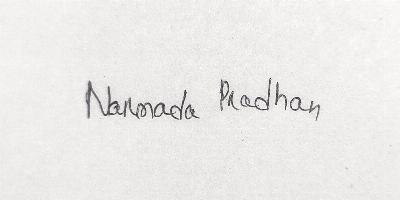 Narmada Pradhan